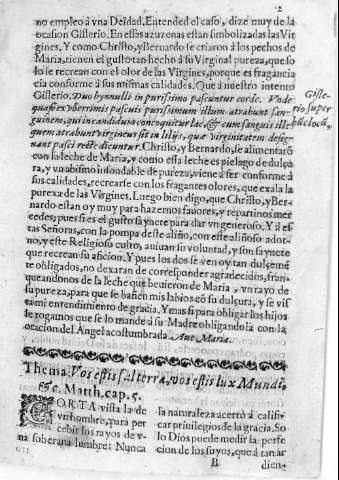 2
no empleo à vna Deidad. Entended el caso, dize muy de la
ocasion Gislerio. En essas azuzenas estan simbolizadas las Vir
gines, Y como Christo, y Bernardo se criaron à los pechos de
Maria, tienen el gusto tan hecho à su Virginal pureza, que so
lo se recrean con el olor de las Virgines, porque es fragancia
cia conforme à sus mismas calidades. Que à nuestro intento
Gislerio. Duo hynnuli in purissimo pascuntur corde. Vnde
quasi ex vberrimis pascuis purissimum illum atrahunt san-
guinem, qui in candidum concoquitur lac, & cum sanguis ille
quem atrahunt virgineus sit in lilijs, quæ Virginitatem desig-
nant pasci recte dicuntur. Christo, y Bernardo, se alimentarõ
con la leche de Maria, y como esta leche es pielago de dulçu
ra, y vn abismo insondable de pureza, viene à ser conforme à
sus calidades, recrearse con los fragantes olores, que exala la
purexa de las Virgines. Luego bien digo, que Christo, y Ber-
nardo estan oy muy para hazernos fauores, y repartirnos mer
cedes; pues si es el gusto saynete para dar vn generoso. Y à es
tas Señoras, con la pompa deste aliño, con este aliñoso ador-
no, y este Religioso culto, auiuan su voluntad, y son saynete
que recrean su aficion. Y pues los dos se ven oy tan dulçemẽ
te obligados, no dexaran de corresponder agradecidos, fran-
queandonos de la leche que beuieron de Maria, vn rayo de
su pureza, para que se bañen mis labios cõ su dulçura, y se vis
ta mi entendimiento de gracia. Y mas si para obligar los hijos
le rogamos que se lo mande à su Madre obligandola con la
oracion del Angel acostumbrada. Aue Maria.
Gisle-
rio super
hũc locũ.
Thema: Vos estis sal terræ, vos estis lux Mundi,
&c. Matth. cap. 5.
CORTA vista la de
vn hombre, para per
cebir los rayos de v-
na soberana lumbre: Nunca
la naturaleza acertò à califi-
car priuilegios de la gracia. So
lo Dios puede medir la perfe
cion de los suyos, que à tan ar
B
dien-